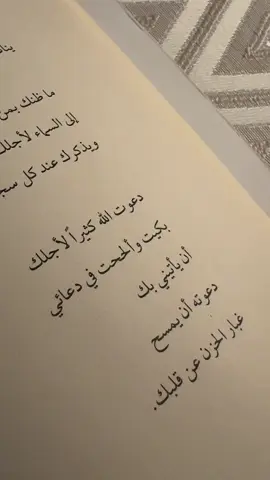 ما ظنك بمن
إلى السماء لأجلك
ويذكرك عند كل
دعوت الله كثيراً لأجلك
بكيت وألححت في دعائي
أن يأتيني بك
دعوته أن يمسح
غبار الحزن عن قلبك.